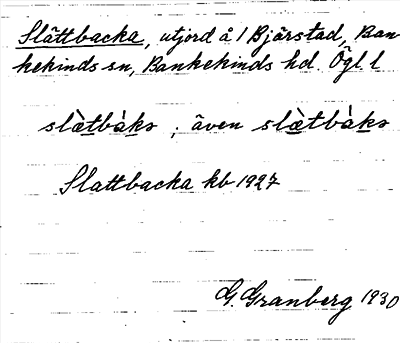 Slättbacka, utjord å 1 Bjärstad, Ban-
kekinds sn, Bankekinds hd. Ögl l
slàtbàkə ; även slàtbàkə
Slattbacka kb 1927
G. Granberg 1930